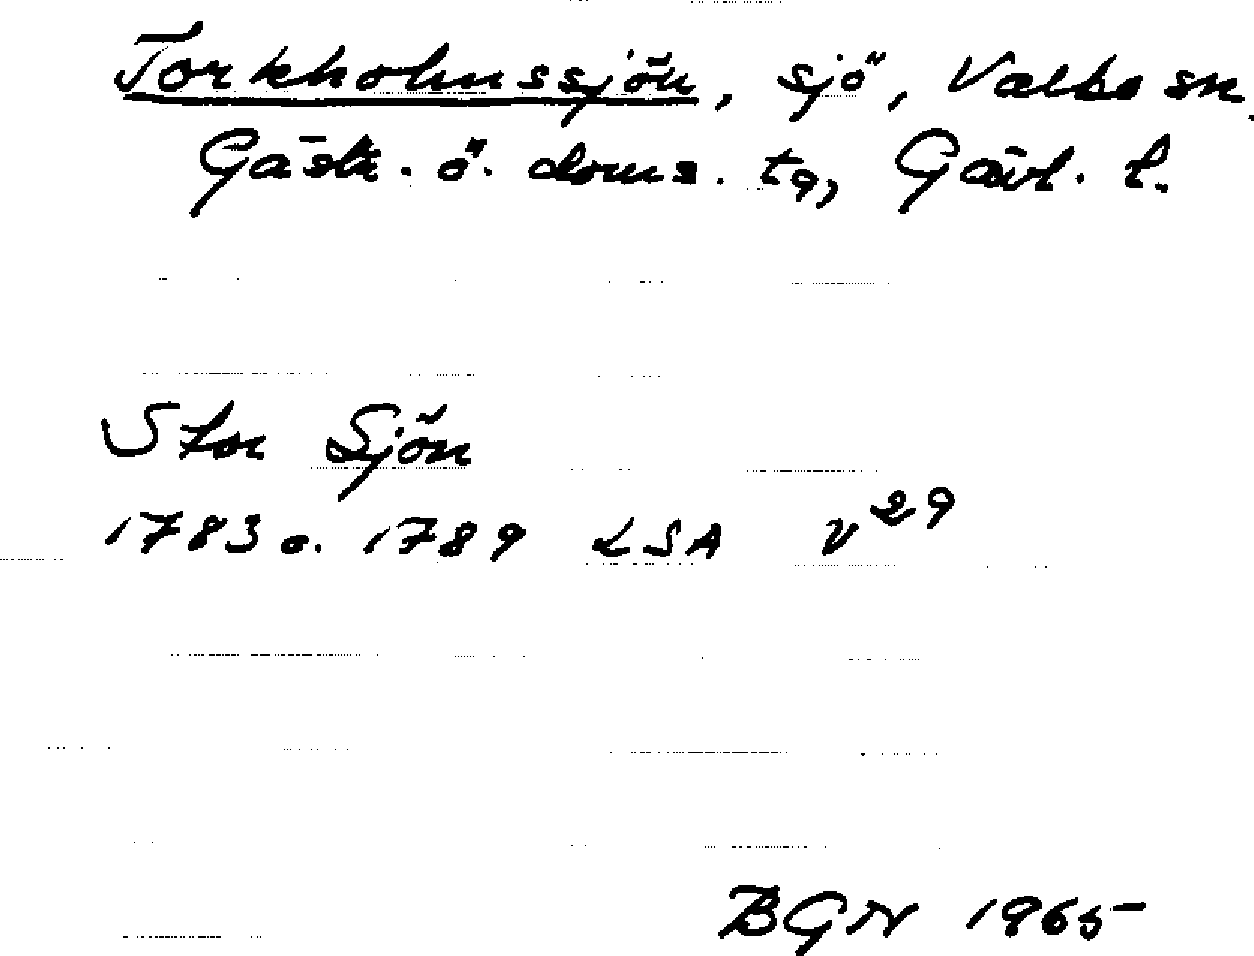 Torkholmssjön, sjö, Valbo sn.
Gästr. ö. doms. tg, Gävl. l.
Stor Sjön
1783 o. 1789 LSA V 29
BGN 1965